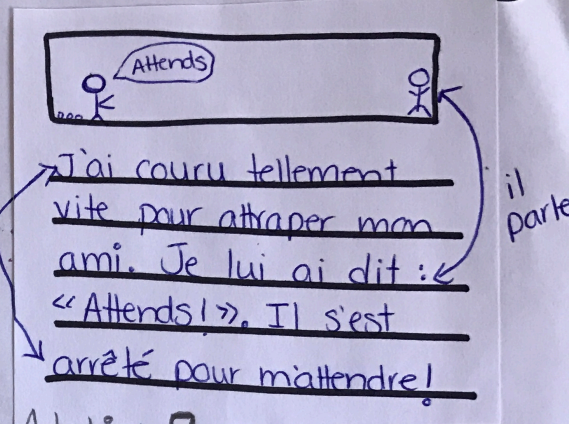 Attends
J'ai couru tellement
vite pour attraper mon
ami. Je lui ai dit :
«Attends!». Il s'est
arrêté pour m'attendre!
il
parle